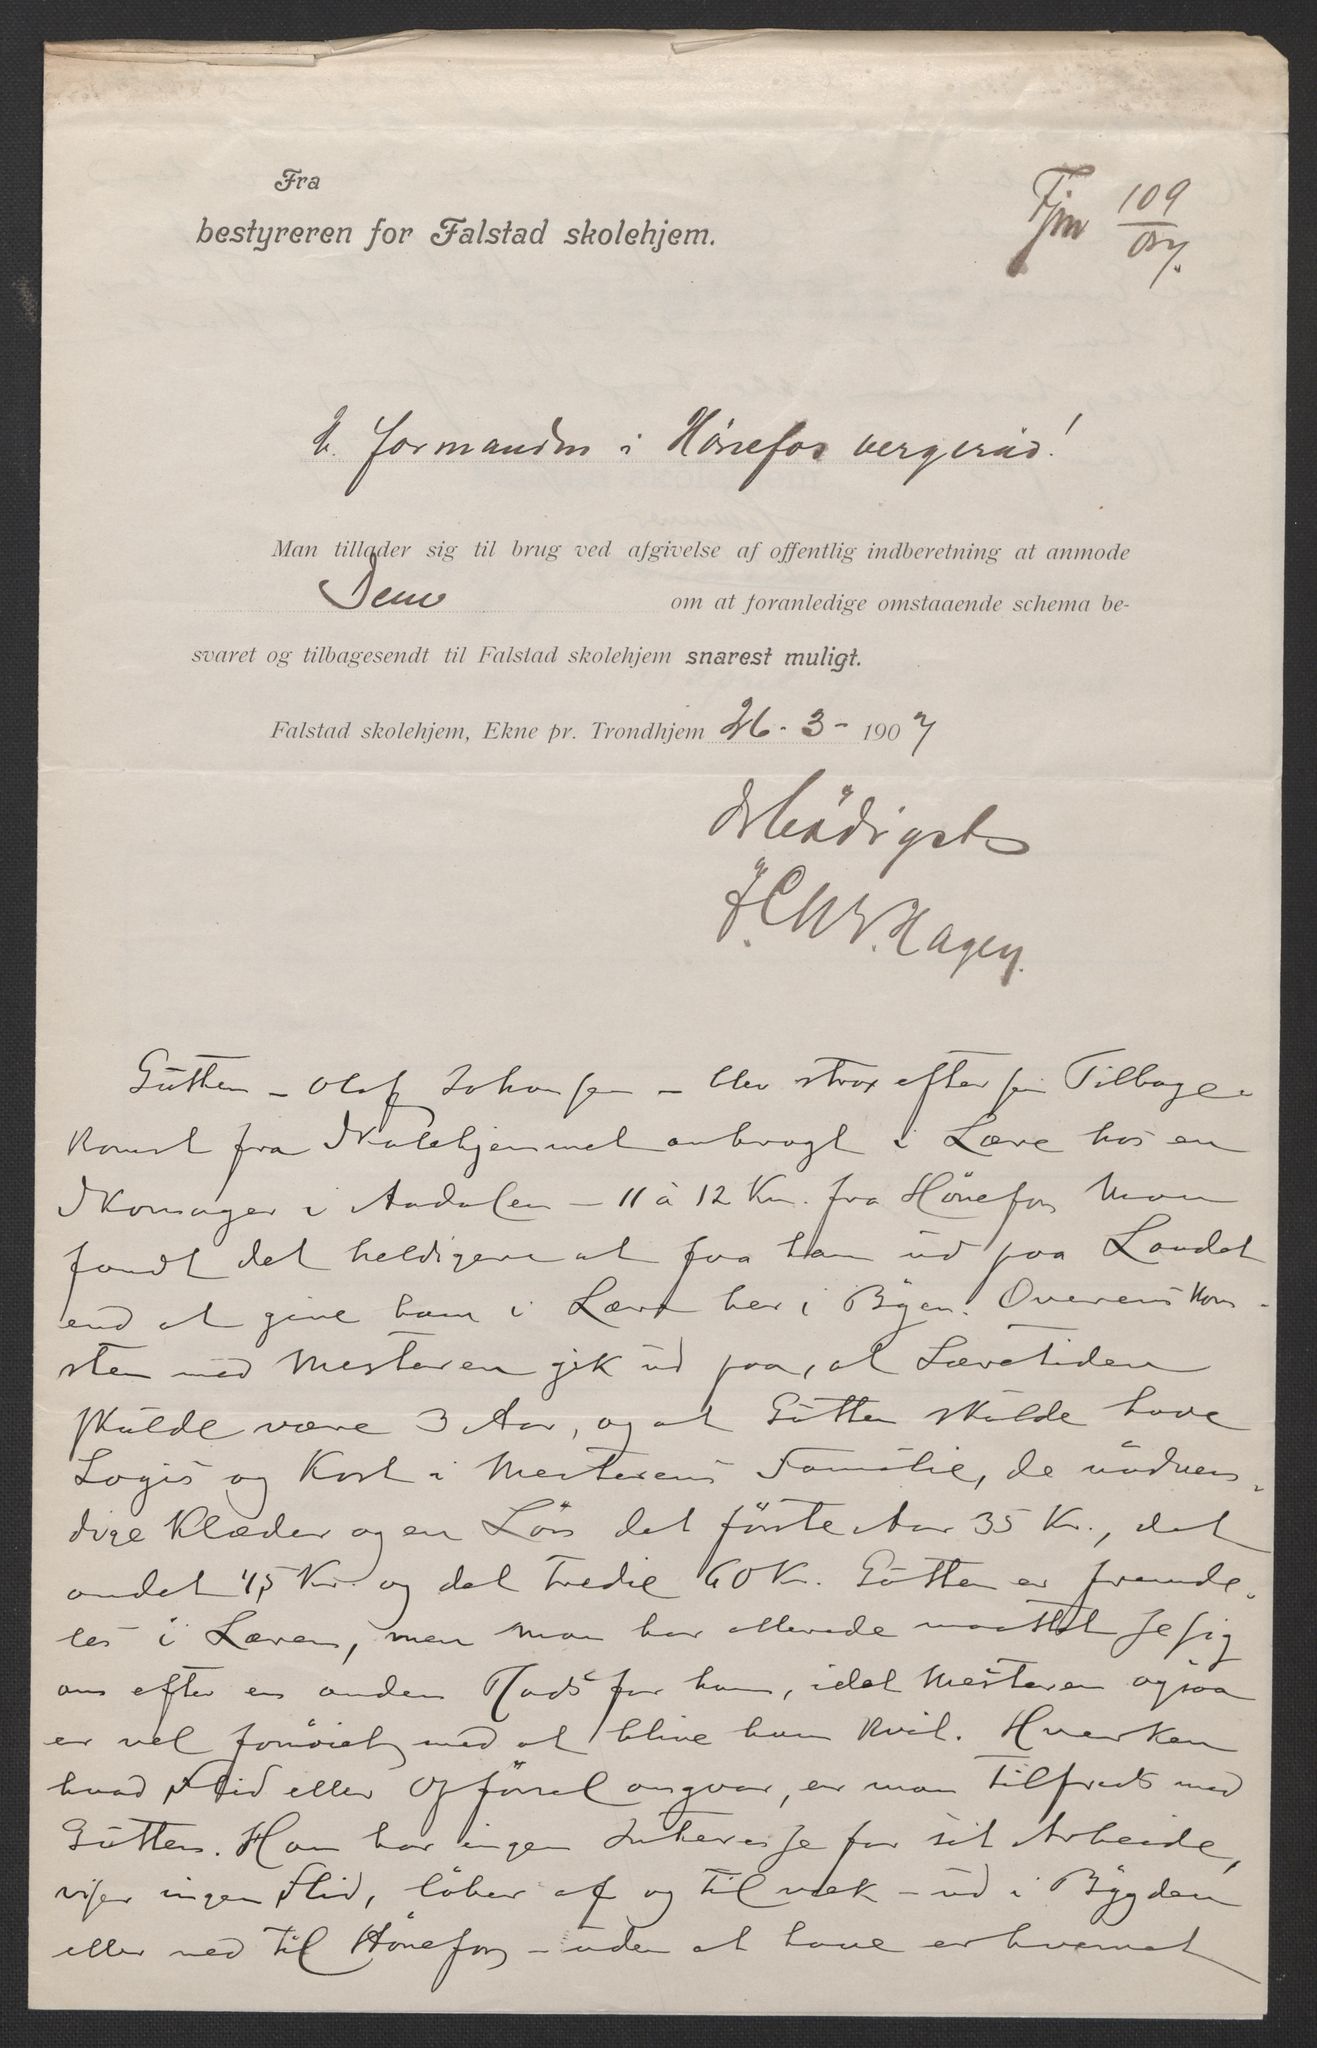 Fra
bestyreren for Falstad skolehjem.
109
07.
formanden i Hönefos vergeraad!
Man tillader sig til brug ved afgivelse af offentlig indberetning at anmode
Dem om at foranledige omstaaende schema be-
svaret og tilbagesendt til Falstad skolehjem snarest muligt.
Falstad skolehjem, Ekne pr. Trondhjem 26-3-1907
Ærbödigst
Hagen.
Gutten – Olaf Johansen – blev strax efter sin Tilbage-
komst fra Skolehjemmet anbragt i Lære hos en
Skomager i Aadalen – 11 à 12 Km. fra Hönefos. Man
fandt det heldigere at faa ham ud paa Landet
end at give ham i Lære her i Byen. Overenskom-
sten med Mesteren gik ud paa, at Læretiden
skulde være 3 Aar, og at Gutten skulde have
Logis og Kost i Mesterens Familie, de nödven-
dige Klæder og en Lön det förste Aar 35 Kr., det
andet 45 Kr. og det tredie 60 Kr. Gutten er fremde-
les i Læren, men man har allerede maattet se sig
om efter en anden Plads for ham, idet Mesteren ogsaa
er vel fornöiet med at blive ham kvit. Hverken
hvad Flid eller Opförsel angaar, er man tilfreds med
Gutten. Han har ingen Interesse for sit Arbeide,
viser ingen Flid, löber af og til væk – ud i Bygden
eller ned til Hönefos – uden at have erhvervet